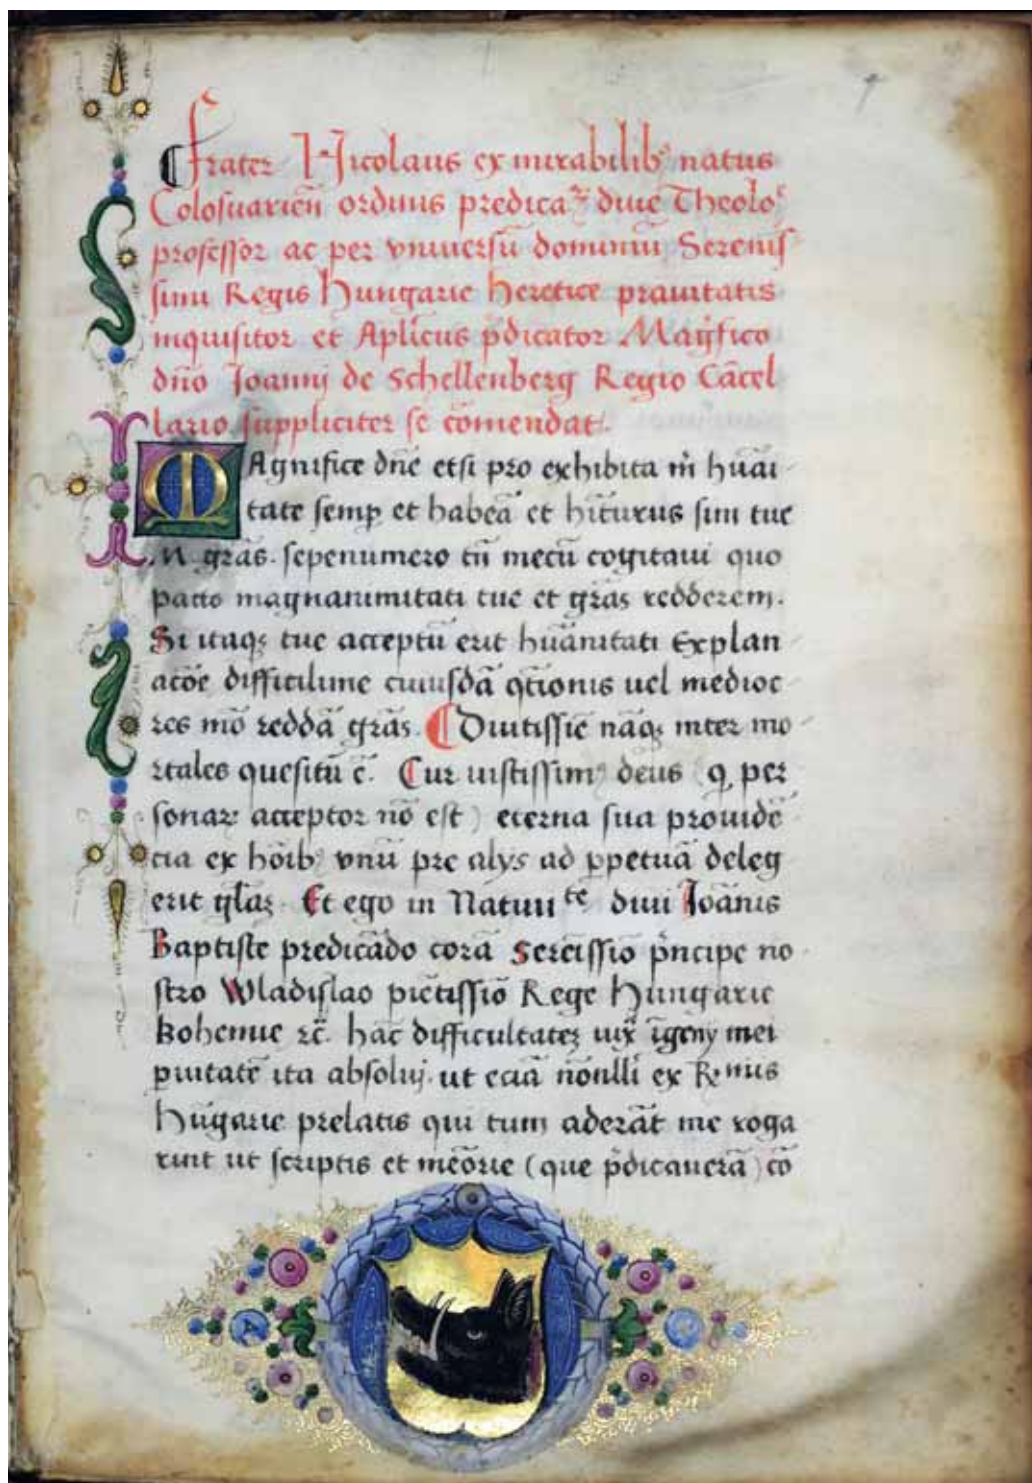 Frater Nicolaus ex mirabilibꝰ natus
Colosuarieñ ordinis predicaꝝ diue Theoloᵉ
professor ac per vniuersũ dominiũ Serenis
simi Regis Hungarie heretice prauitatis
inquisitor et Apłicus p̄dicator Mag̃fico
dño Joannj de Schellenberg Regio Cãcel
lario suppliciter se cõmendat.
MAgnifice dñe etsi pro exhibita m̃ huãi
tate semꝑ et habeã et h̃iturus sim tue
M grãs. sepenumero tñ mecũ cogitaui quo
pacto magnanimitati tue et grãs redderem.
Si itaqꝫ tue acceptũ erit huãnitati Explan
acõe difficilime cuiusdã q̃tionis uel medioc
res mõ reddã grãs. Diutissiẽ nãqꝫ inter mo
rtales quesitũ ẽ. Cur iustissimꝰ deus (q̃ per
sonaꝝ acceptor nõ est) eterna sua prouidẽ
cia ex hõibꝰ vnũ pre alijs ad ꝑpetuã deleg
erit glãꝫ. Et ego in Natiuiᵗᵉ diui Joãnis
Baptiste predicãdo corã Sereissiõ p̃ncipe no
stro Wladislao piẽtissiõ Rege Hungarie
Bohemie ꝛc̃. hãc difficultateꝫ iux̃ ĩgenij mei
ꝑuitatẽ ita absoluj. ut eciã nõnlli ex Rᵉᵐⁱˢ
Hũgarie prelatis qui tum aderãt me roga
rint ut scriptis et meõrie (que p̄dicauerã) cõ
A